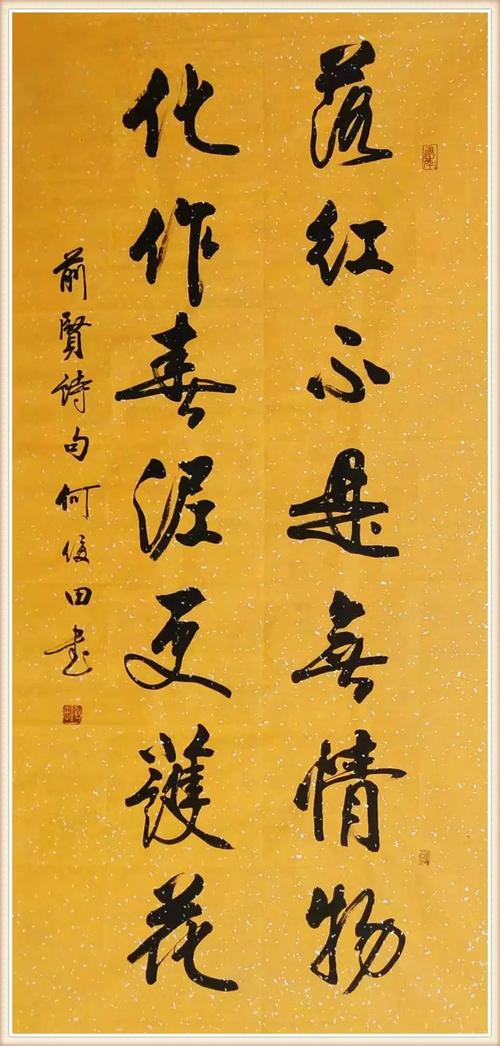 落红不是無情物
化作春泥更護花
前賢詩句何俊田书